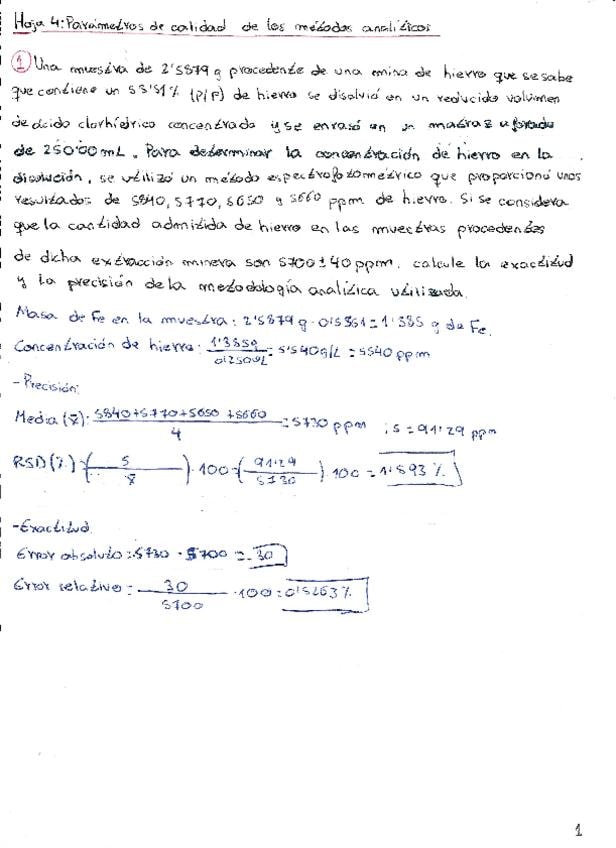 Hoja 4: Parámetros de calidad de los métodos analíticos
1 Una muestra de 2'5879 g procedente de una mina de hierro que se sabe
que contiene un 53'51% (P/P) de hierro se disolvió en un reducido volumen
de ácido clorhídrico concentrado y se enrasó en un matraz aforado
de 250'00 mL. Para determinar la concentración de hierro en la
disolución, se utilizó un método espectrofotométrico que proporcionó unos
resultados de 5840, 5770, 5650 y 5660 ppm de hierro. Si se considera
que la cantidad admitida de hierro en las muestras procedentes
de dicha extracción minera son 5700 ± 40 ppm. calcule la exactitud
y la precisión de la metodología analítica utilizada.
Masa de Fe en la muestra: 2'5879 g · 0'5351 = 1'385 g de Fe.
Concentración de hierro: 1'385g / 0'250L = 5'540 g/L = 5540 ppm
- Precisión:
Media (x̄): 5840+5770+5650+5660 / 4 = 5730 ppm ; s = 91'29 ppm
RSD(%) = (s / x̄) · 100 = (91'29 / 5730) · 100 = 1'593 %
- Exactitud.
Error absoluto = 5730 - 5700 = 30
Error relativo = 30 / 5700 · 100 = 0'5263 %
1